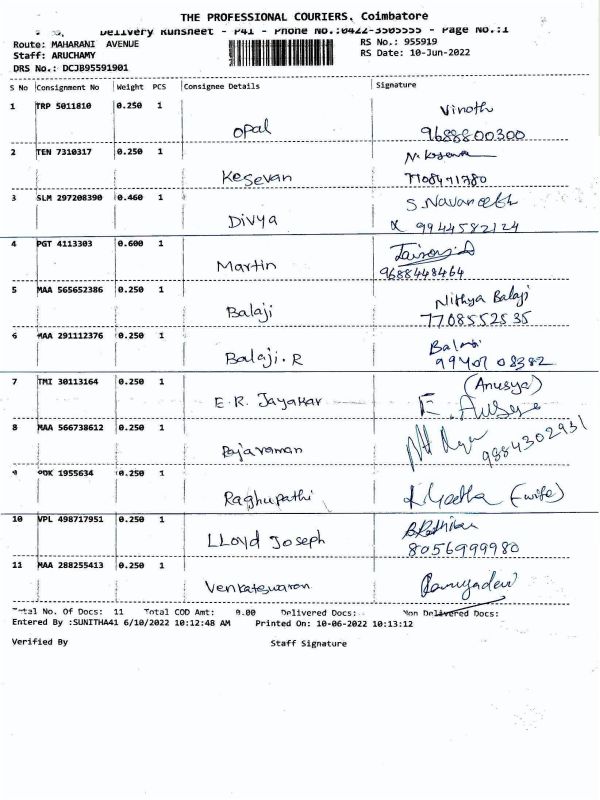 THE PROFESSIONAL COURIERS, Coimbatore
Delivery Runsheet - P41 - Phone No.:0422-3505555 - Page No.:1
Route: MAHARANI AVENUE RS No.: 955919
Staff: ARUCHAMY RS Date: 10-Jun-2022
DRS No.: DCJB95591901
S No Consignment No Weight PCS Consignee Details Signature
1 TRP 5011810 0.250 1 Vinoth
Opal 9688800300
2 TEN 7310317 0.250 1
Kesevan
3 SLM 297208390 0.460 1 S.Navaneeth
Divya 9944582124
4 PGT 4113303 0.600 1
Martin 9688448464
5 MAA 565652386 0.250 1 Nithya Balaji
Balaji 7708552535
6 MAA 291112376 0.250 1 Balaji
Balaji.R 9940708382
7 TMI 30113164 0.250 1 (Anusya)
E.R. Jayakar
8 MAA 566738612 0.250 1
Rajaraman 9884302931
9 1955634 0.250 1
Raghupathi (wife)
10 VPL 498717951 0.250 1
LLoyd Joseph 8056999980
11 MAA 288255413 0.250 1
Venkateswaran
Total No. Of Docs: 11 Total COD Amt: 0.00 Delivered Docs: Non Delivered Docs:
Entered By :SUNITHA41 6/10/2022 10:12:48 AM Printed On: 10-06-2022 10:13:12
Verified By Staff Signature